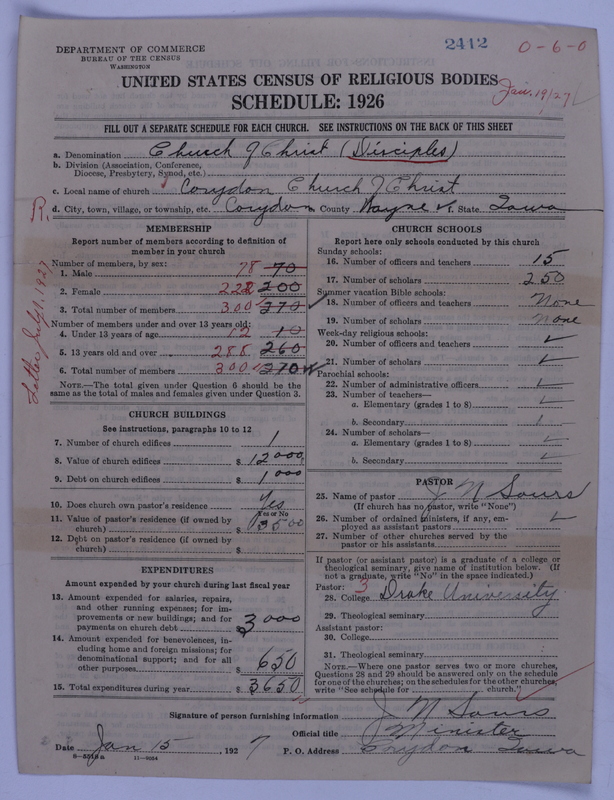 2412
0-6-0
DEPARTMENT OF COMMERCE
BUREAU OF THE CENSUS
WASHINGTON
UNITED STATES CENSUS OF RELIGIOUS BODIES
Jan. 19/27
SCHEDULE: 1926
FILL OUT A SEPARATE SCHEDULE FOR EACH CHURCH. SEE INSTRUCTIONS ON THE BACK OF THIS SHEET
a. Denomination Church of Christ (Disciples)
b. Division (Association, Conference,
Diocese, Presbytery, Synod, etc.)
c. Local name of church Corydon Church of Christ
d. City, town, village, or township, etc. Corydon County Wayne State Iowa
R.
Letter July 1, 1927
MEMBERSHIP
Report number of members according to definition of
member in your church
Number of members, by sex:
1. Male 78 70
2. Female 222 200
3. Total number of members 300 270
Number of members under and over 13 years old:
4. Under 13 years of age 12 10
5. 13 years old and over 288 260
6. Total number of members 300 270
NOTE.—The total given under Question 6 should be
same as the total of males and females given under Question 3.
CHURCH BUILDINGS
See instructions, paragraphs 10 to 12
7. Number of church edifices 1
8. Value of church edifices $ 12000
9. Debt on church edifices $ 1000
10. Does church own pastor's residence Yes
Yes or No
11. Value of pastor's residence (if owned by
church) $ 3500
12. Debt on pastor's residence (if owned by
church) $
EXPENDITURES
Amount expended by your church during last fiscal year
13. Amount expended for salaries, repairs,
and other running expenses; for im-
provements or new buildings; and for
payments on church debt $ 3000
14. Amount expended for benevolences, in-
cluding home and foreign missions; for
denominational support; and for all
other purposes $ 650
15. Total expenditures during year $ 3650
CHURCH SCHOOLS
Report here only schools conducted by this church
Sunday schools:
16. Number of officers and teachers 15
17. Number of scholars 250
Summer vacation Bible schools:
18. Number of officers and teachers None
19. Number of scholars None
Week-day religious schools:
20. Number of officers and teachers
21. Number of scholars
Parochial schools:
22. Number of administrative officers
23. Number of teachers—
a. Elementary (grades 1 to 8)
b. Secondary
24. Number of scholars—
a. Elementary (grades 1 to 8)
b. Secondary
PASTOR
25. Name of pastor J M Sours
(If church has no pastor, write "None")
26. Number of ordained ministers, if any, em-
ployed as assistant pastors
27. Number of other churches served by the
pastor or his assistants
If pastor (or assistant pastor) is a graduate of a college or
theological seminary, give name of institution below. (If
not a graduate, write "No" in the space indicated.)
Pastor: 3
28. College Drake University
29. Theological seminary
Assistant pastor:
30. College
31. Theological seminary
NOTE.—Where one pastor serves two or more churches,
Questions 28 and 29 should be answered only on the schedule
for one of the churches; on the schedules for the other churches,
write "See schedule for church."
Signature of person furnishing information J M Sours
Official title Minister
Date Jan 15 1927 P. O. Address Corydon Iowa
8-5318a 11-9034